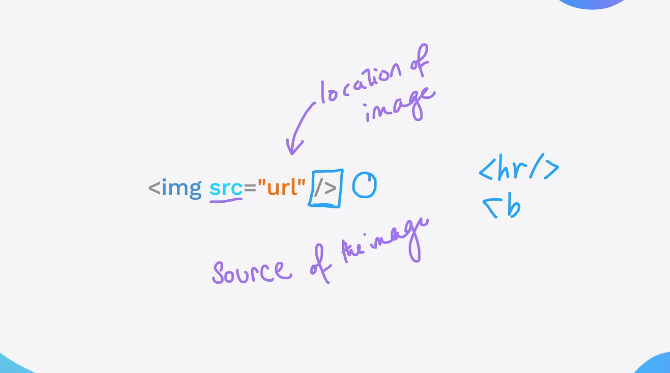 location of
image
<img src="url" />
<hr/>
<b
Source of the image